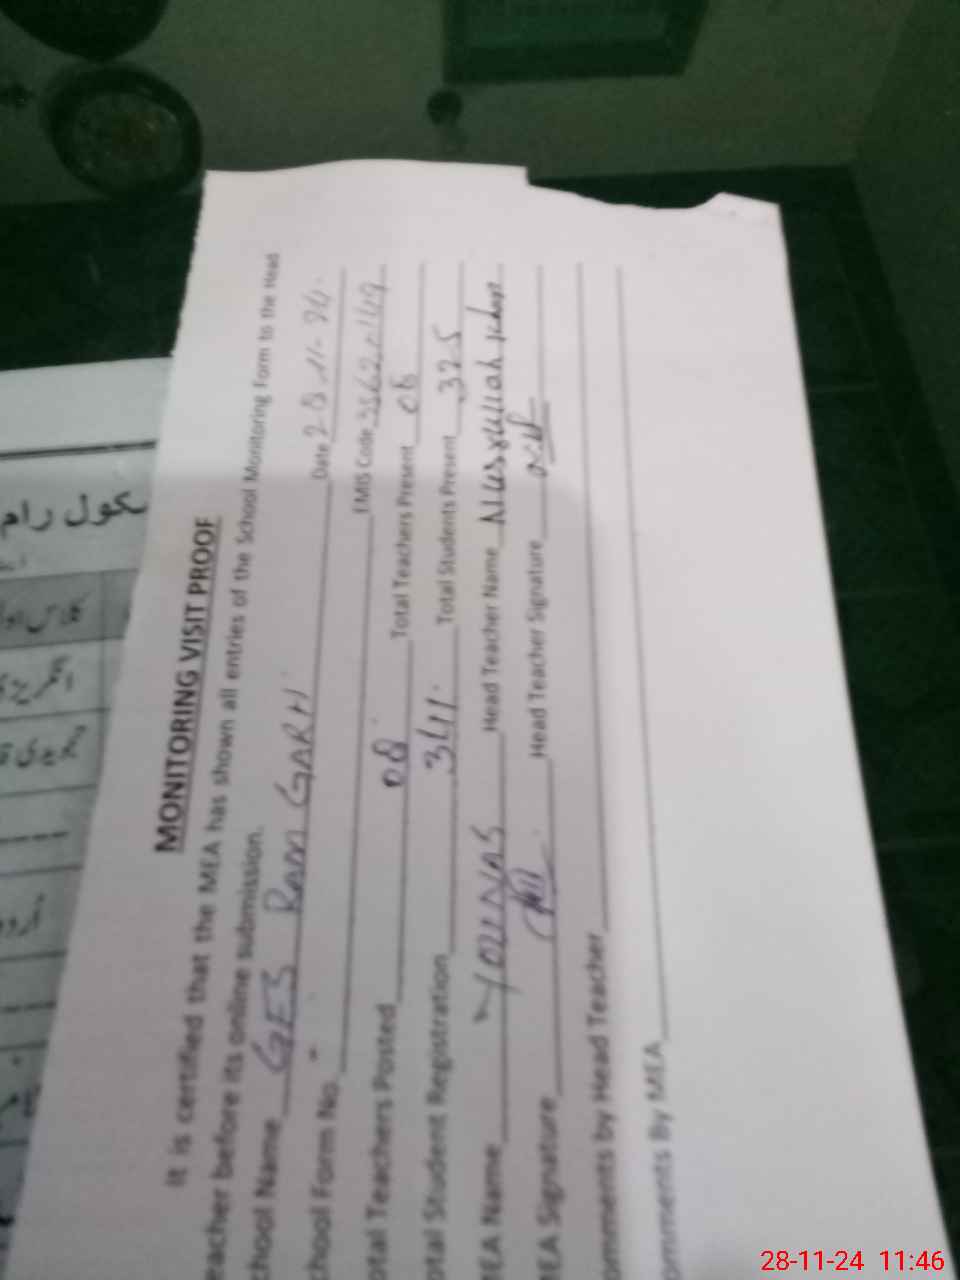 MONITORING VISIT PROOF
It is certified that the MEA has shown all entries of the School Monitoring Form to the Head
eacher before its online submission.
chool Name GES RAM GARH Date 28-11-24
chool Form No. - EMIS Code
otal Teachers Posted 08 Total Teachers Present 08
otal Student Registration 341 Total Students Present 325
MEA Name YOUNAS Head Teacher Name Nusrullah Khan
MEA Signature Head Teacher Signature
omments by Head Teacher
omments By MEA
سکول رام
کلاس
28-11-24 11:46